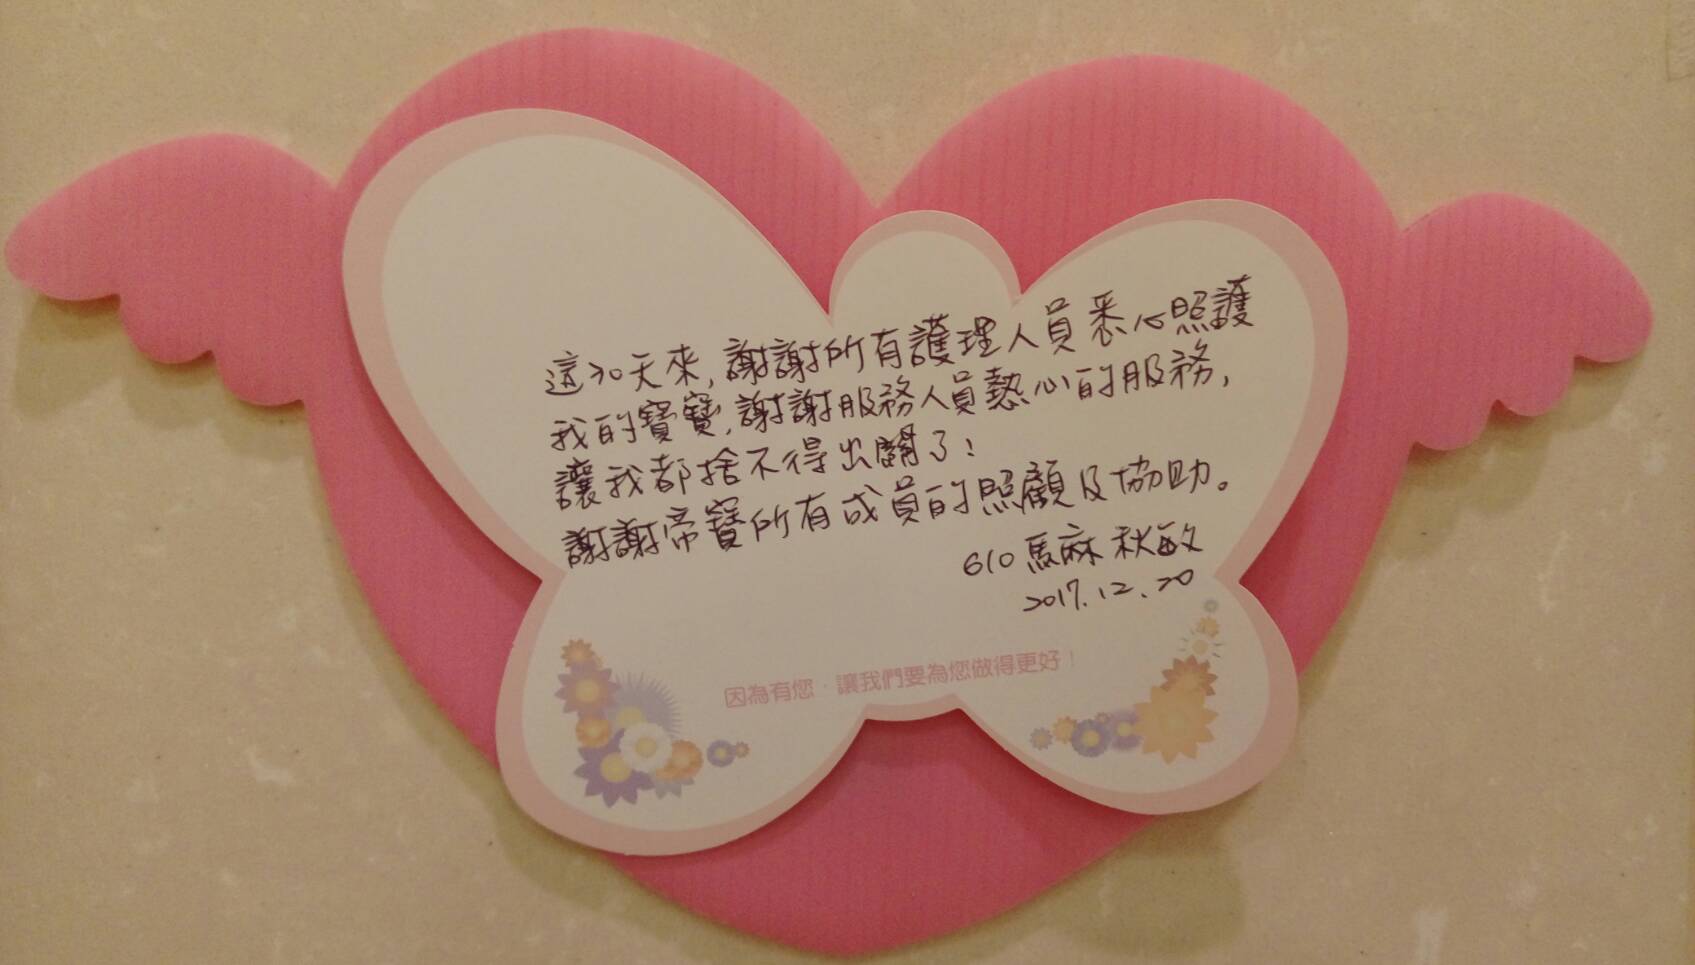 這30天來,謝謝所有護理人員悉心照護
我的寶寶,謝謝服務人員熱心的服務,
讓我都捨不得出關了!
謝謝帝寶所有成員的照顧及協助。
610馬麻 秋敏
2017.12.20
因為有您‧讓我們要為您做得更好!